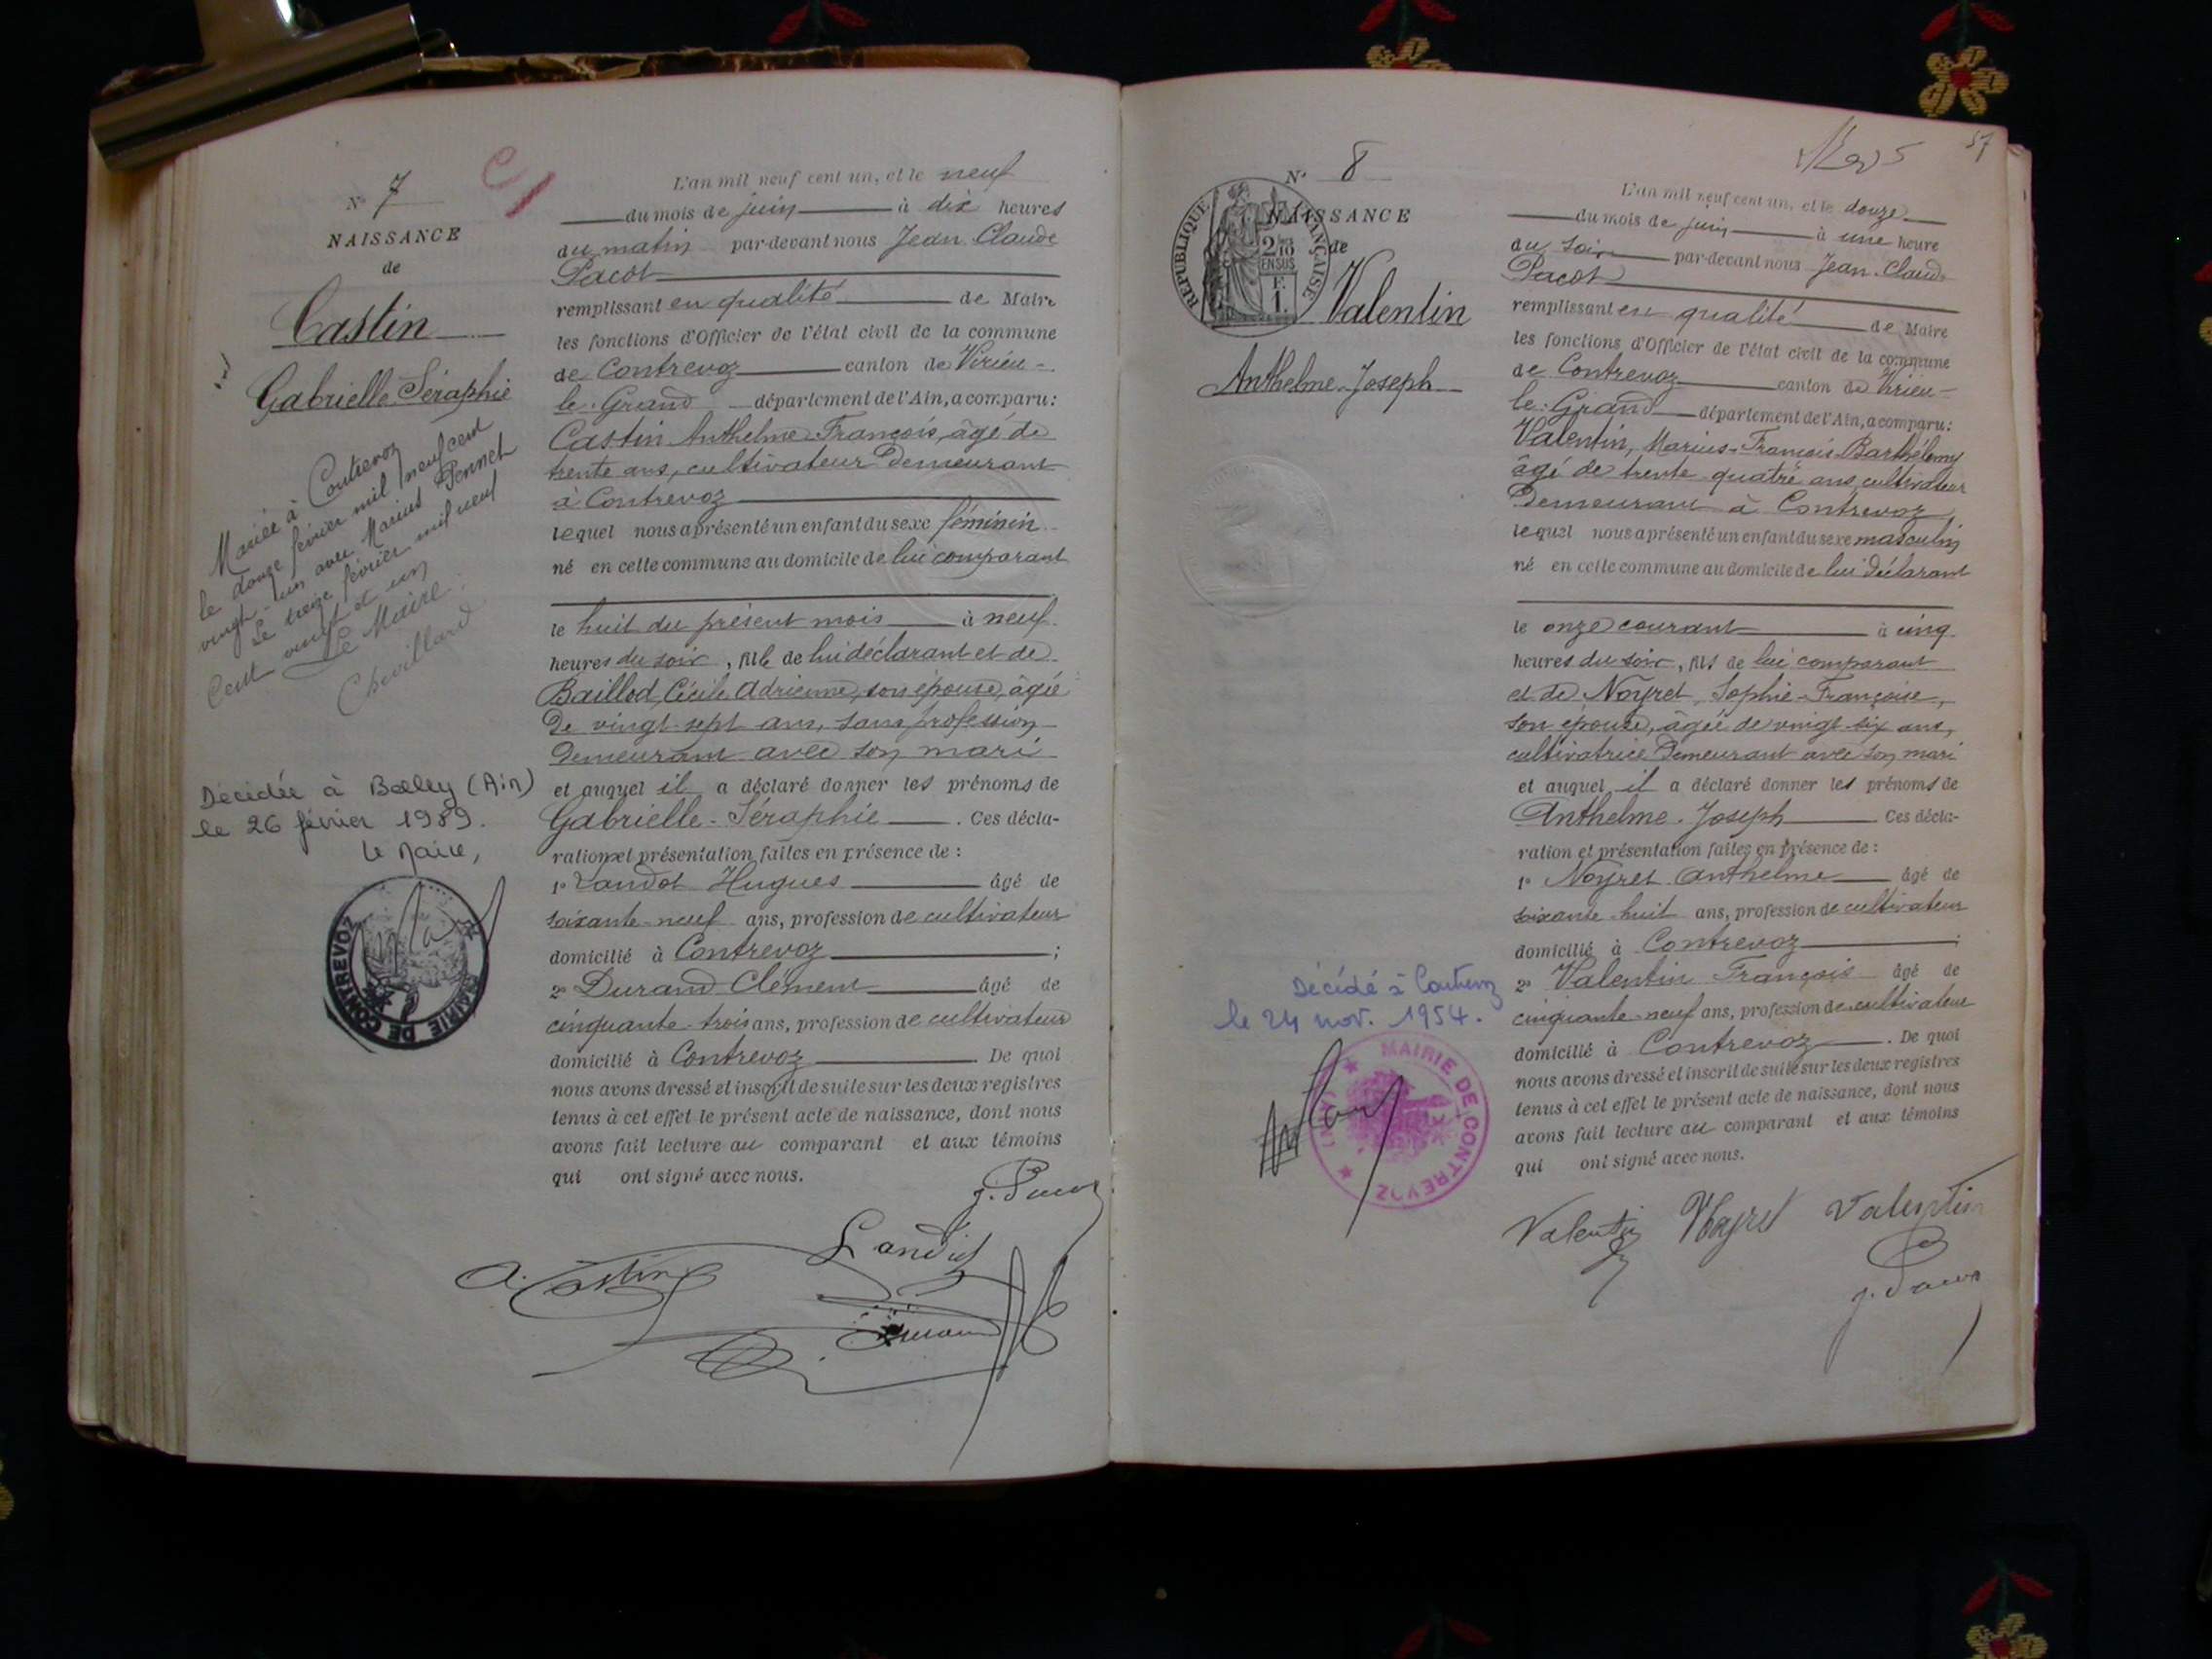 N° 7
NAISSANCE
de
Castin
Gabrielle Séraphie
Mariée à Contrevoz
le douze février mil neuf cent
vingt-un avec Marius Pennet
Le treize février mil neuf
cent vingt et un
Le Maire :
Chevillard
Décédée à Belley (Ain)
le 26 février 1989.
Le Maire,
MAIRIE DE CONTREVOZ
L'an mil neuf cent un, et le neuf
du mois de juin à dix heures
du matin par-devant nous Jean Claude
Pacot
remplissant en qualité de Maire
les fonctions d'Officier de l'état civil de la commune
de Contrevoz canton de Virieu-
le-Grand département de l'Ain, a comparu :
Castin Anthelme François, âgé de
trente ans, cultivateur demeurant
à Contrevoz
lequel nous a présenté un enfant du sexe féminin
né en cette commune au domicile de lui comparant
le huit du présent mois à neuf
heures du soir, fille de lui déclarant et de
Baillod, Cécile Adrienne, son épouse, âgée
de vingt-sept ans, sans profession
demeurant avec son mari
et auquel il a déclaré donner les prénoms de
Gabrielle-Séraphie. Ces décla-
ration et présentation faites en présence de :
1° Landot Hugues âgé de
soixante-neuf ans, profession de cultivateur
domicilié à Contrevoz ;
2° Durand Clément âgé de
cinquante-trois ans, profession de cultivateur
domicilié à Contrevoz. De quoi
nous avons dressé et inscrit de suite sur les deux registres
tenus à cet effet le présent acte de naissance, dont nous
avons fait lecture au comparant et aux témoins
qui ont signé avec nous.
J. Pacot
Landot
A. Castin
Durand
57
N° 8
NAISSANCE
de
RÉPUBLIQUE FRANÇAISE
2/10 EN SUS
F. 1.
Valentin
Anthelme-Joseph
Décédé à Contrevoz
le 24 nov. 1954.
MAIRIE DE CONTREVOZ
(AIN)
L'an mil neuf cent un, et le douze
du mois de juin à une heure
du soir par-devant nous Jean-Claude
Pacot
remplissant en qualité de Maire
les fonctions d'Officier de l'état civil de la commune
de Contrevoz canton de Virieu-
le-Grand département de l'Ain, a comparu :
Valentin, Marius-François-Barthélemy
âgé de trente-quatre ans, cultivateur
demeurant à Contrevoz
lequel nous a présenté un enfant du sexe masculin
né en cette commune au domicile de lui déclarant
le onze courant à cinq
heures du soir, fils de lui comparant
et de Noyret, Sophie-Françoise,
son épouse, âgée de vingt-six ans,
cultivatrice demeurant avec son mari
et auquel il a déclaré donner les prénoms de
Anthelme-Joseph Ces décla-
ration et présentation faites en présence de :
1° Noyret Anthelme âgé de
soixante-huit ans, profession de cultivateur
domicilié à Contrevoz ;
2° Valentin François âgé de
cinquante-neuf ans, profession de cultivateur
domicilié à Contrevoz. De quoi
nous avons dressé et inscrit de suite sur les deux registres
tenus à cet effet le présent acte de naissance, dont nous
avons fait lecture au comparant et aux témoins
qui ont signé avec nous.
Valentin Noyret Valentin
J. Pacot